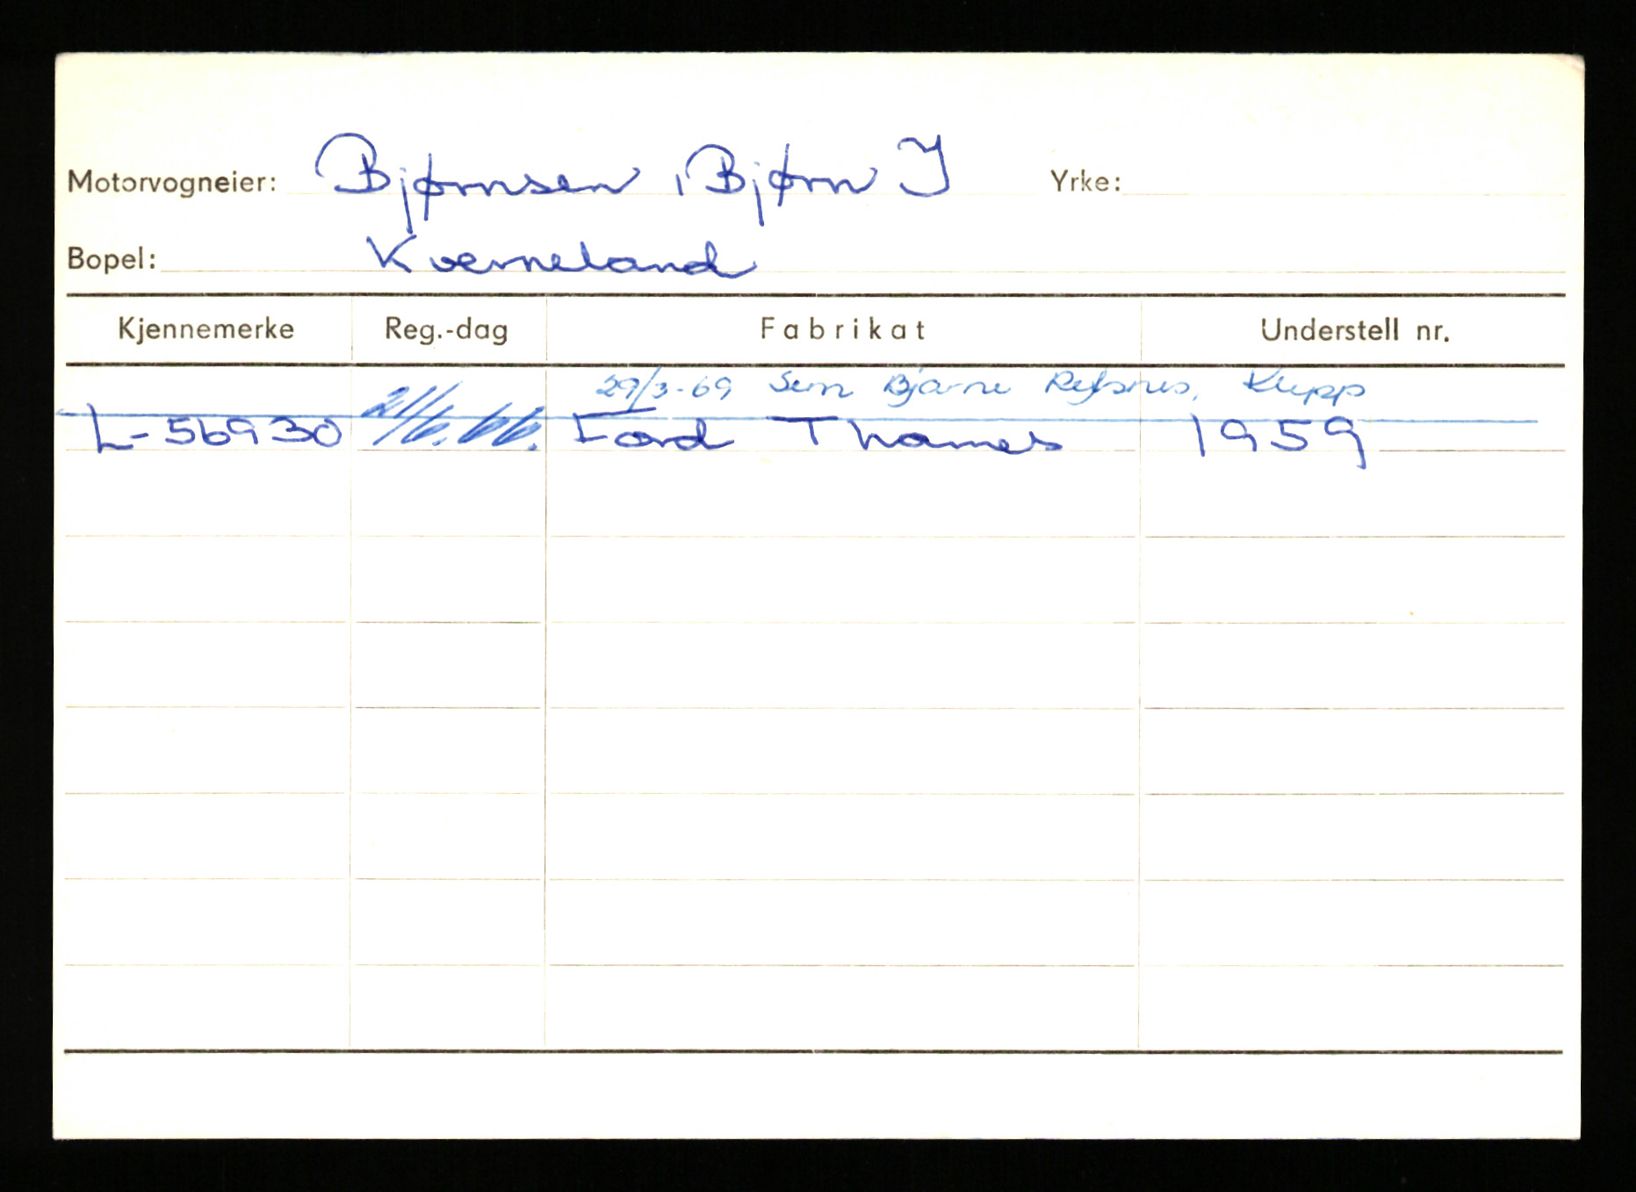 Motorvogneier: Bjørnsen, Bjørn J Yrke:
Bopel: Kverneland
Kjennemerke Reg.-dag Fabrikat Understell nr.
29/3-69 Sem Bjarne Refsnes, Klepp
L-56930 21/6.66. Ford Thames 1959